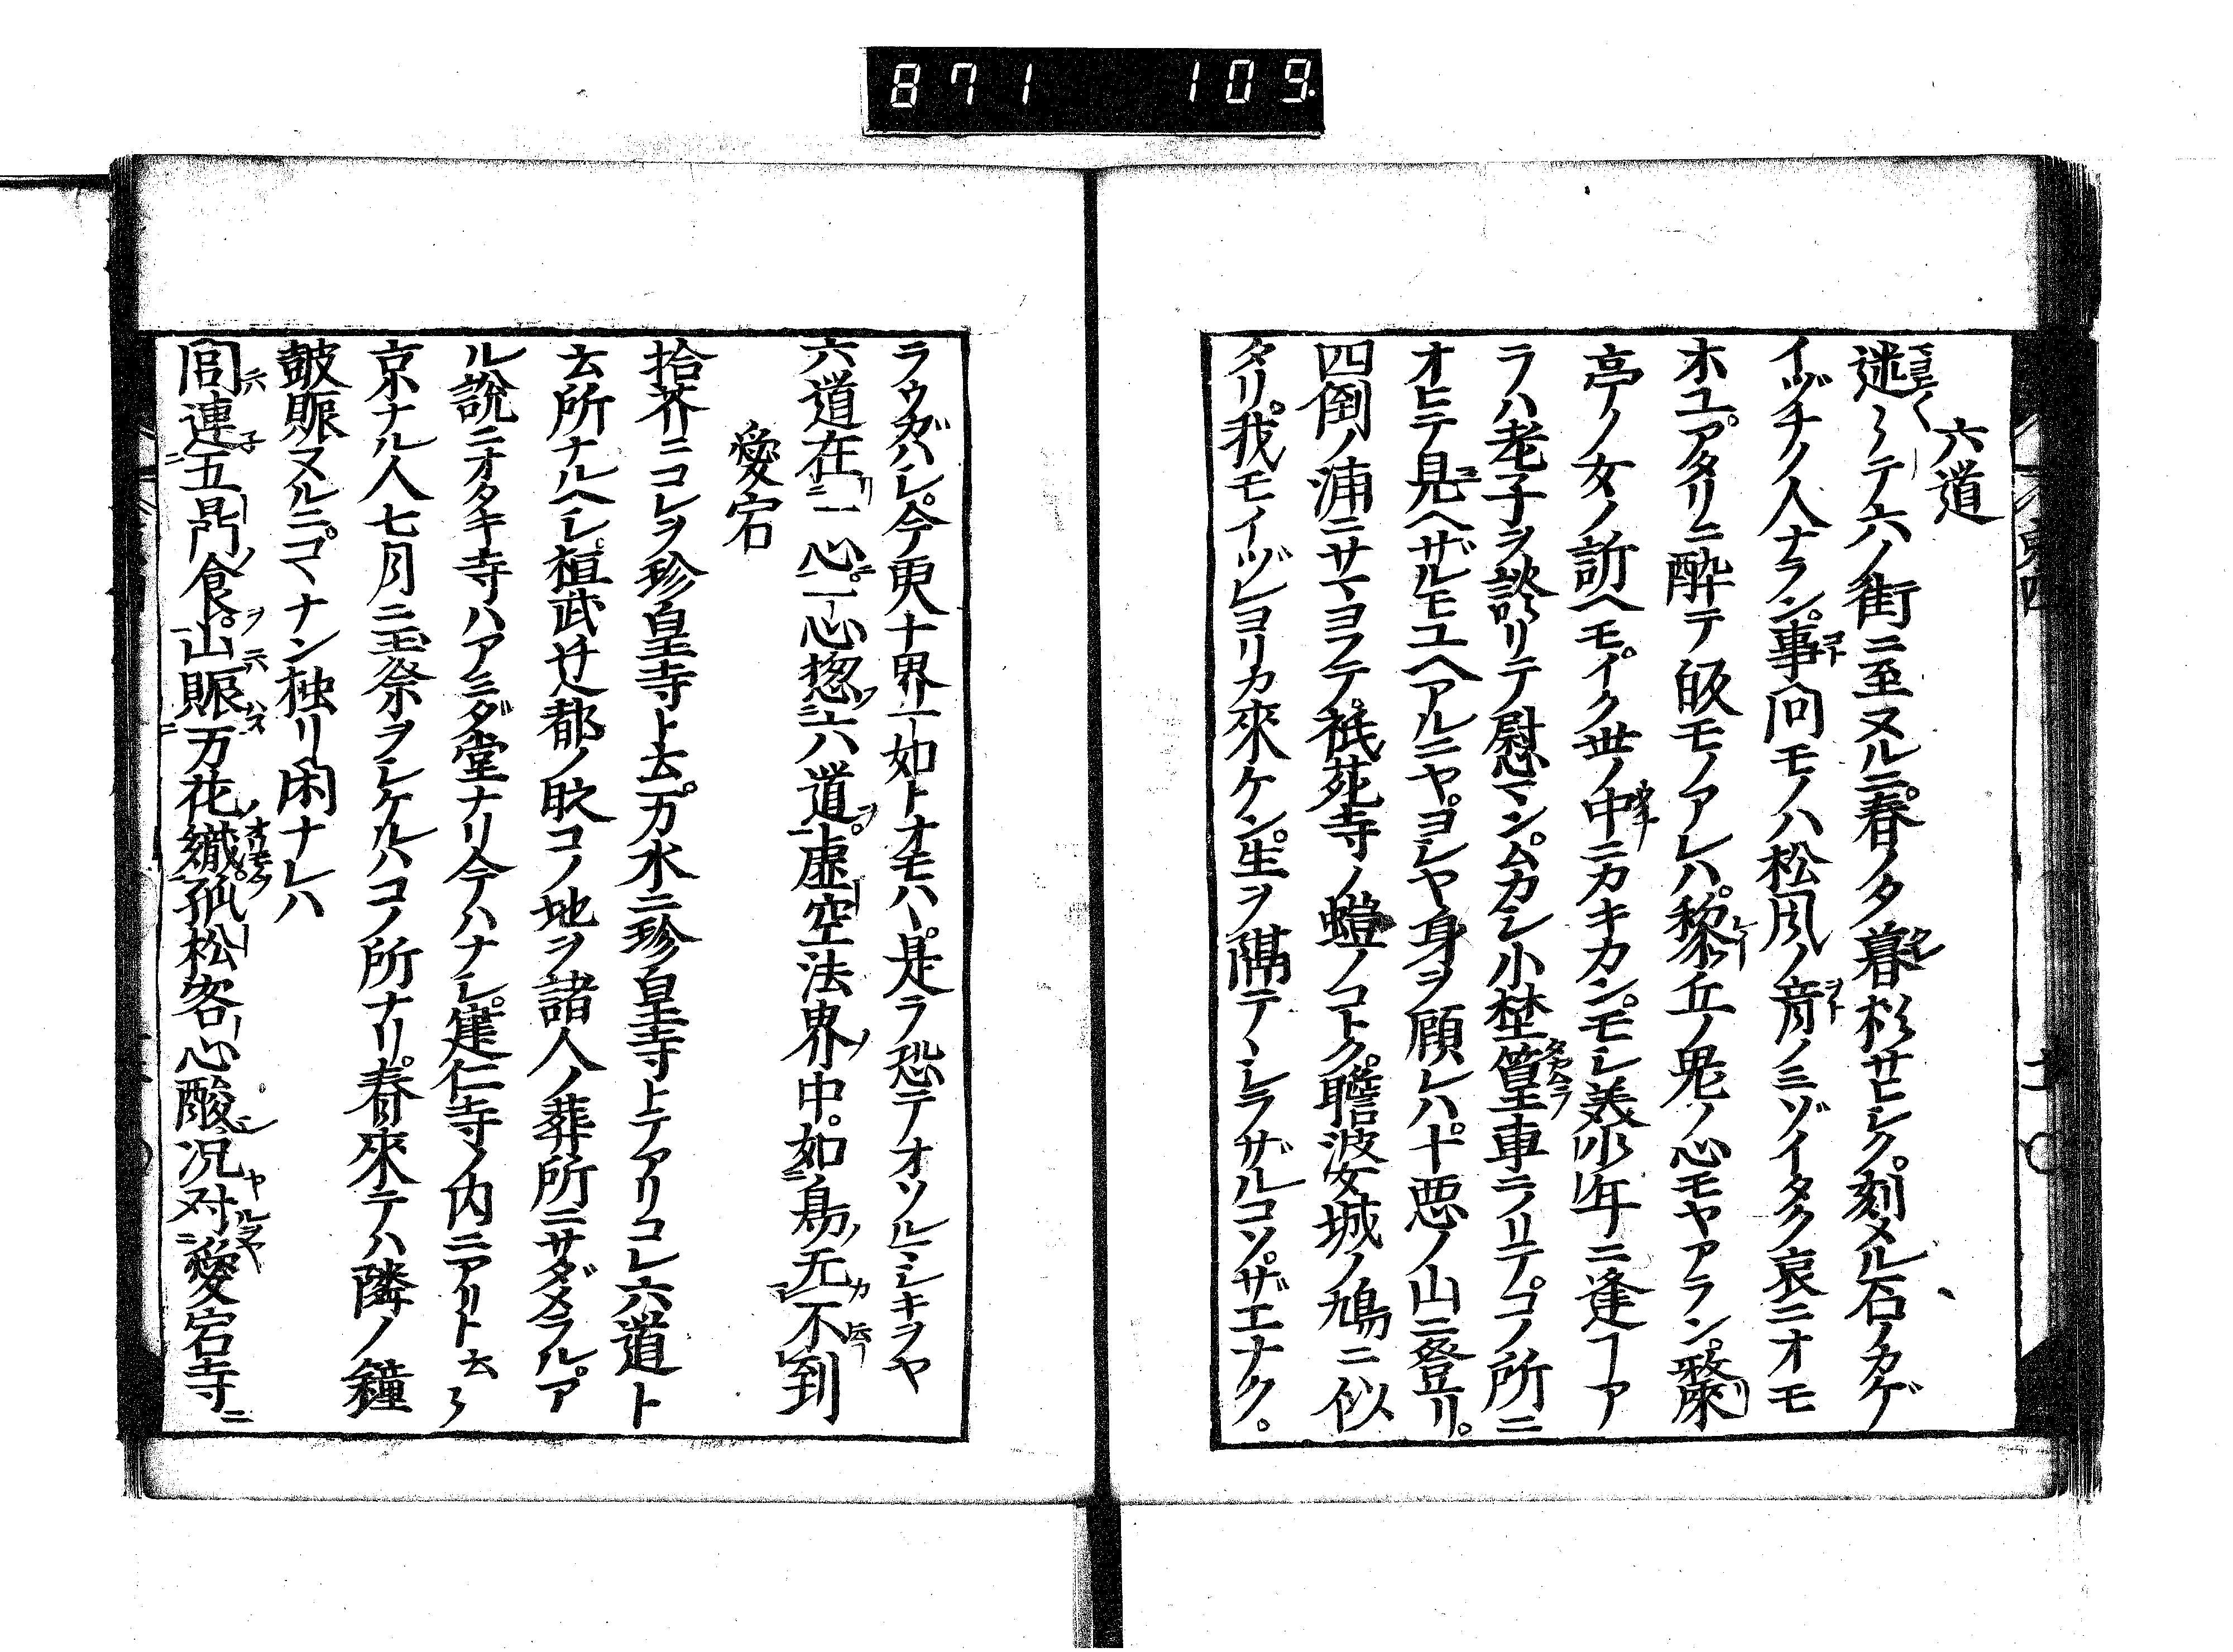 871 109.
六道
迷〱テ六ノ街ニ至ヌルニ。春ノ夕暮杉サヒシク。刻メル石ノカゲ
イヅチノ人ナラン。事問モノハ松風ノ音ノミゾイタク哀ニオモ
ホユ。アタリニ酔テ皈モノアレハ。黎丘ノ鬼ノ心モヤアラン。聚
亭ノ女ノ訴ヘモ。イク世ノ中ニカキカン。モシ美少年ニ逢フーア
ラハ老子ヲ談リテ慰マン。ムカシ小埜篁車ラリテ。コノ所ニ
オヒテ見ヘザルモユヘアルニヤ。ヨシヤ身ヲ顧レハ。十悪ノ山ニ登リ。
四倒ノ浦ニサマヨフテ。祇苑寺ノ螘ノコトク。瞻波城ノ鳩ニ似
タリ。我モイヅレヨリカ來ケン。生ヲ隔テヽシラザルコソ。ザエナク。
ラウガハシ。今更十界一如トオモハヽ。是ラ恐テオソルヽシキヲヤ
六道在一心。一心惣六道。虚空法界中。如鳥无不到
愛宕
拾芥ニコレヲ珍皇寺ト云。万水ニ珍皇寺トテアリコレ六道ト
云所ナルヘシ。桓武せ辷都ノ時コノ地ヲ諸人ノ葬所ニサダメラル。ア
ル説ニオタキ寺ハアミダ堂ナリ今ハナシ。建仁寺ノ内ニアリト云々
京ナル人七月ニ玉祭ヲシケルハコノ所ナリ。春來テハ隣ノ鐘
皷賑ヌルニ。コヽナン独リ閑ナレハ
閭連五門食。山賑万花織。孤松客心酸。况对愛宕寺